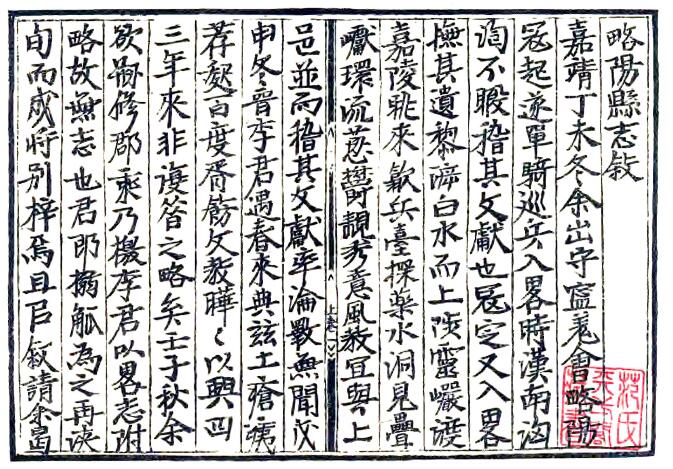 略陽縣志敘
嘉靖丁未冬余出守寧羗會略陽
冦起遂單騎巡兵入畧時漢南洶
洶不暇稽其文獻也冦定又入畧
撫其遺黎泝白水而上陟靈巖渡
嘉陵眺来歙兵臺探藥水洞見疊
巘環流葱鬱靚秀意風教宜與上
上卷
邑並而稽其文獻率淪斁無聞戊
申冬晉李君遇春来典玆土瘡痍
荐起百度胥飭文教曄〻以興四
三年來非復昔之略矣壬子秋余
欲嗣修郡乘乃檄李君以畧志附
略故無志也君即搦觚為之再浹
旬而成將别梓焉且㠯敘請余曷
范氏